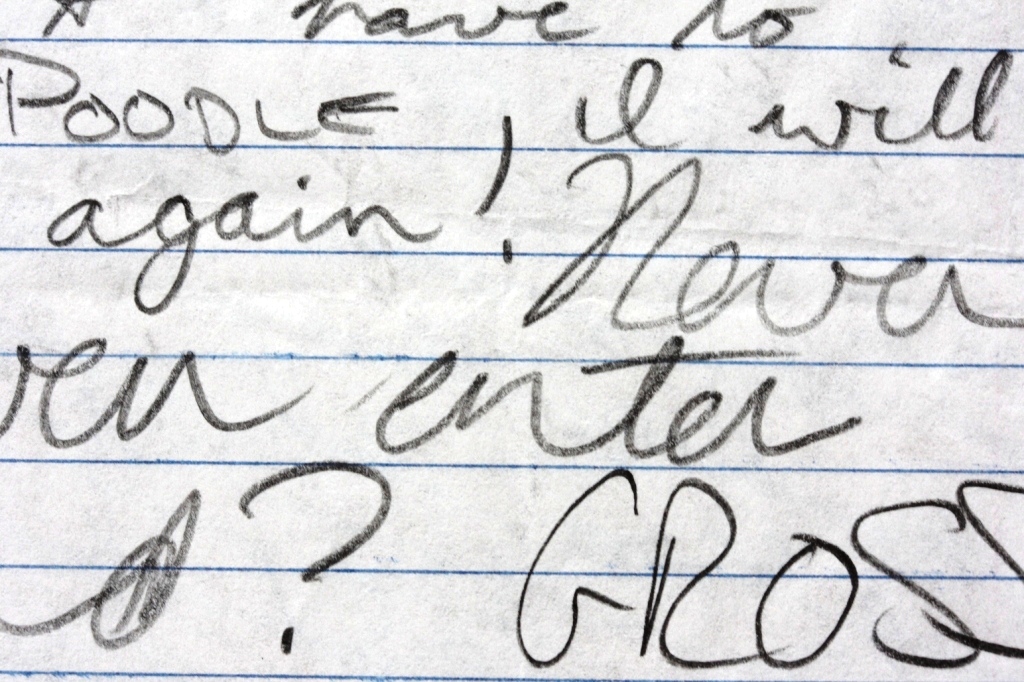 have to
POODLE, I will
again! Never
enter
? GROSS